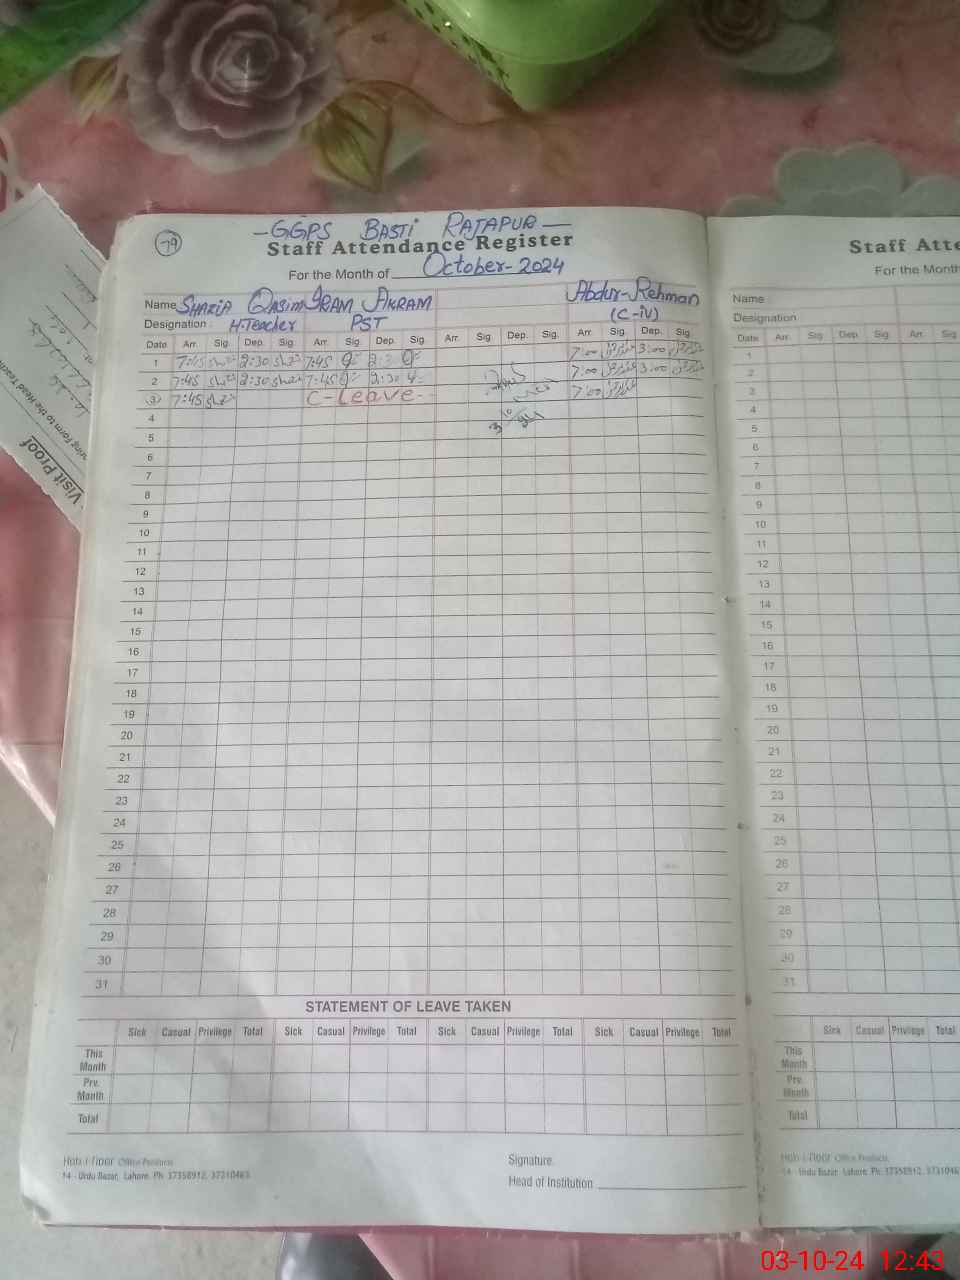 79
— GGPS BASTI RAJAPUR —
Staff Attendance Register
For the Month of October-2024
Name SHAZIA QASIM IRAM AKRAM Abdur-Rehman
Designation : H.Teacher PST (C-iv)
Date Arr. Sig. Dep. Sig. Arr. Sig. Dep. Sig. Arr. Sig. Dep. Sig. Arr. Sig. Dep. Sig.
1 7:45 2:30 7:45 7:00 3:00
2 7:45 2:30 7:45 2:30 7:00 3:00
3 7:45 C-Leave 7:00
4
5
6
7
8
9
10
11
12
13
14
15
16
17
18
19
20
21
22
23
24
25
26
27
28
29
30
31
STATEMENT OF LEAVE TAKEN
Sick Casual Privilege Total Sick Casual Privilege Total Sick Casual Privilege Total Sick Casual Privilege Total
This Month
Prv. Month
Total
Office Products
14 - Urdu Bazar, Lahore. Ph: 37358912, 37310463
Signature.
Head of Institution
Staff Atte
For the Month
Name
Designation
Date Arr. Sig. Dep. Sig. Arr. Sig.
1
2
3
4
5
6
7
8
9
10
11
12
13
14
15
16
17
18
19
20
21
22
23
24
25
26
27
28
29
30
31
Sick Casual Privilege Total
This Month
Prv. Month
Total
Office Products
14 - Urdu Bazar, Lahore. Ph: 37358912, 3731046
Visit Proof
ring Form to the Head Teacher
03-10-24 12:43